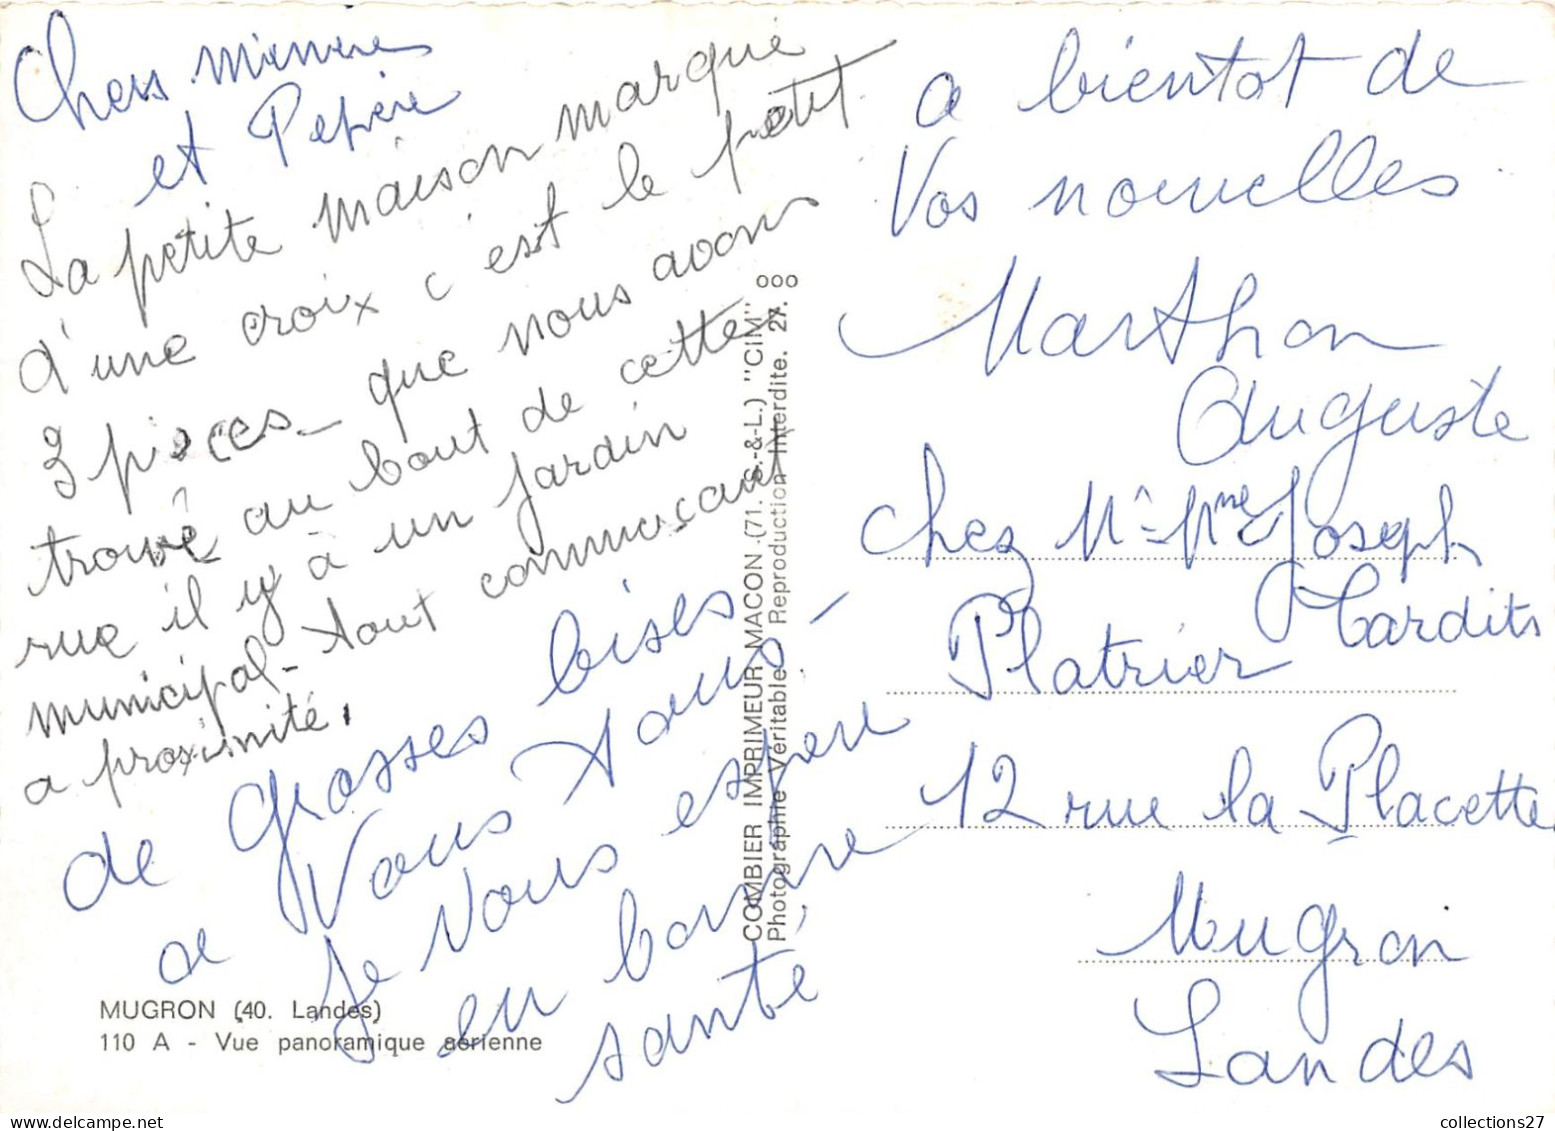 Chers mémère
et Pépère
La petite maison marqué
d'une croix c'est le petit
3 pièces - que nous avons
trouvé au bout de cette
rue il y à un jardin
municipal - tout commerçant
a proximité.
de grosses bises
a vous tous -
Je vous espère
en bonne
santé
MUGRON (40. Landes)
110 A - Vue panoramique aérienne
COMBIER IMPRIMEUR MACON (71. S.-&-L.) "CIM"
Photographie Véritable. Reproduction Interdite. 27.
000
a bientot de
Vos nouvelles
Marthon
Auguste
chez Mr - Mme Joseph
Platrier Tardits
12 rue la Placette
Mugron
Landes
collections27